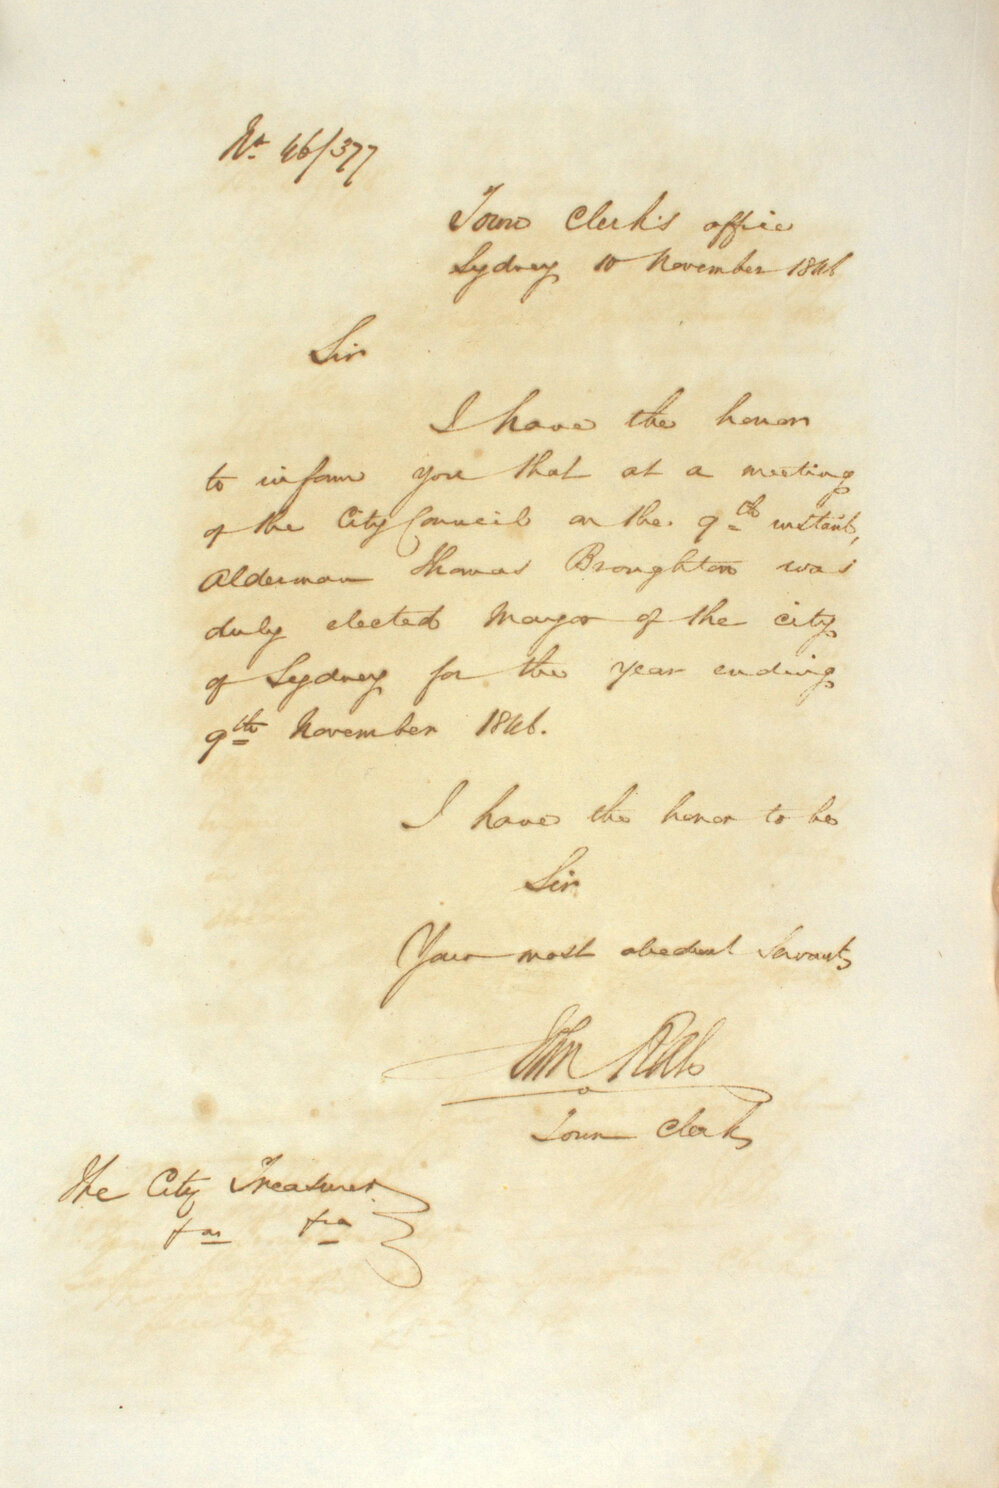 No. 46/377
Town Clerk's office
Sydney 10 November 1846
Sir
I have the honor
to inform you that at a meeting
of the City Council on the 9th instant,
Alderman Thomas Broughton was
duly elected Mayor of the city
of Sydney for the year ending
9th November 1846.
I have the honor to be
Sir
Your most obedient Servant
John Rae
Town Clerk
The City Treasurer